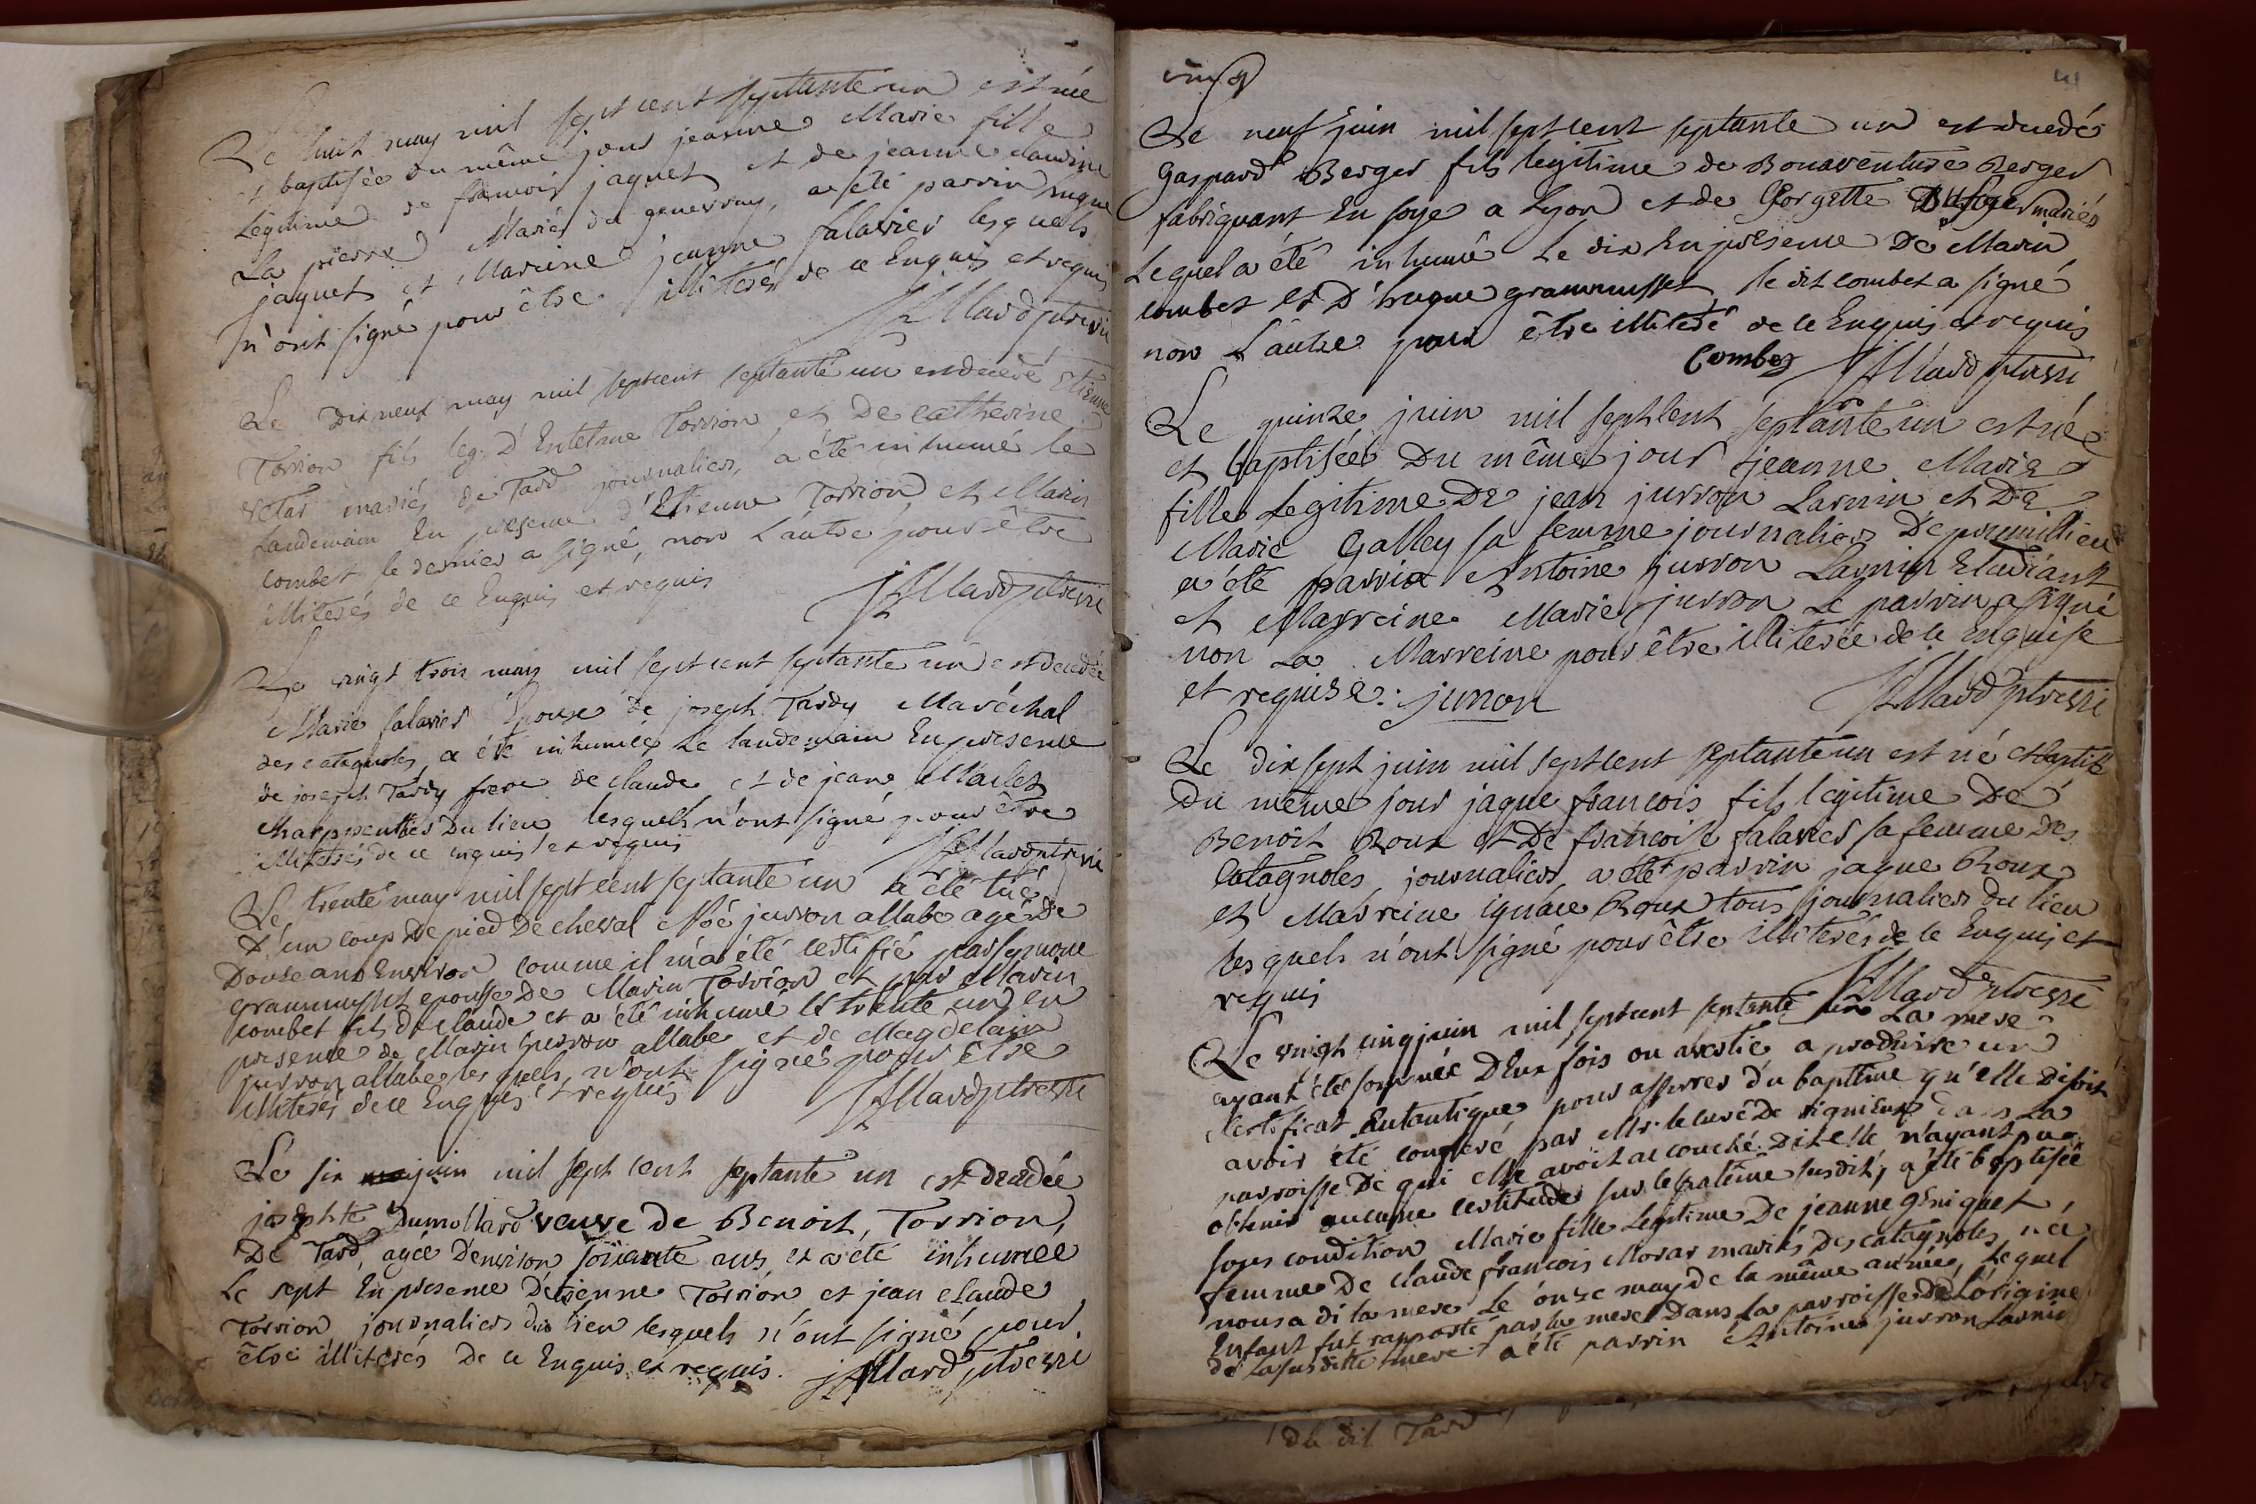 Le huit may mil sept cent septante un est née
et baptisée du même jour jeanne Marie fille
Légitime de francois jaquet et de jeanne claudine
La pierre Mariés du genevray, a été parrin hugue
jaquet et Mareine jeanne falavier lesquels
n'ont signé pour être illiterés de ce Enquis et requis
Le Dix neuf may mil sept cent septante un est decedé Etienne
Torrion fils leg. D'Entelme Torrion et De catherine
mariés de Tard journalier, a été inhumé le
Landemain En presence d'Etienne Torrion et Marin
combet le dernier a signé, non L'autre pour être
illiterés de ce Enquis et requis
Le vingt trois may mil sept cent septante un est decedée
Marie falavier Epouse de joseph Tardy Maréchal
des catagnoles, a été inhumée Le landemain En presence
de joseph Tardy frere de claude et de jean
charpentier Du lieu lesquels n'ont signé pour être
illiterés de ce enquis et requis
Le trente may mil sept cent septante un a été tué
D'un coup De pied De cheval Noé jurron allabe agé de
Douse ans Environ comme il m'a été certifié par
grammusset epousse De Marin Torrion et par Marin
combet fils de Claude et a été inhumé Le trente un en
presence de Marin jurron allabe et de Magdelain
jurron allabe les quels n'ont signé pour être
illiterés de ce Enquis et requis
Le six juin mil sept cent septante un est decedée
josephte Dumollard veuve de Benoit Torrion,
De Tard, agée D'environ soixante ans, et a été inhumée
Le sept En presence D'etienne Torrion et jean claude
Torrion journaliers du lieu lesquels n'ont signé pour
être illiterés De ce Enquis et requis.
cinq
41
Le neuf juin mil sept cent septante un est decedé
gaspard Berger fils legitime de Bonaventure Berger
fabriquant En soye a Lyon et de Georgette mariés
Lequel a été inhumé Le dix En presence De Marin
combet et D'hugue grammusset le dit combet a signé
non L'autre pour être illiteré de ce Enquis et requis
Combet
Le quinze juin mil sept cent septante un est née
et baptisée Du même jour jeanne Marie
fille Legitime De jean jurron Larnin et De
Marie Galley sa femme journalier De premillieu
a été parrin Antoine jurron Larnin Etudiant
et Marreine Marie jurron Le parrin a signé
non La Marreine pour être illiterée de ce enquise
et requise. jurron
Le dix sept juin mil sept cent septante un est né et baptisé
Du même jour jaque francois fils legitime De
Benoit Roux et De francoise falavier sa femme Des
Catagnoles, journalier, a été parrin jaque Roux
et Marreine ignace Roux tous journalier du lieu
lesquels n'ont signé pour être illiterés de ce Enquis et
requis
Le vingt cinq juin mil sept cent septante un La mere
ayant été sommée Deux fois ou avertie a produire un
Certificat Autantique, pour assurrer du baptême qu'elle Disoit
avoir été conferé par Mr. le curé De vignieux dans La
parroisse De qui elle avoit accouché Dit elle n'ayant pu
obtenir aucune certitude sur le batême susdit, a été baptisée
sous condition Marie fille Legitime De jeanne geniquet
femme De claude francois Morar mariés Des catagnoles, née
nous a di la mere Le onze may de la même année, Lequel
Enfant fut rapporté par la mere Dans la parroisse De L'origine
de la susditte mere. a été parrin Antoine jurron Larnin
du dit Tard